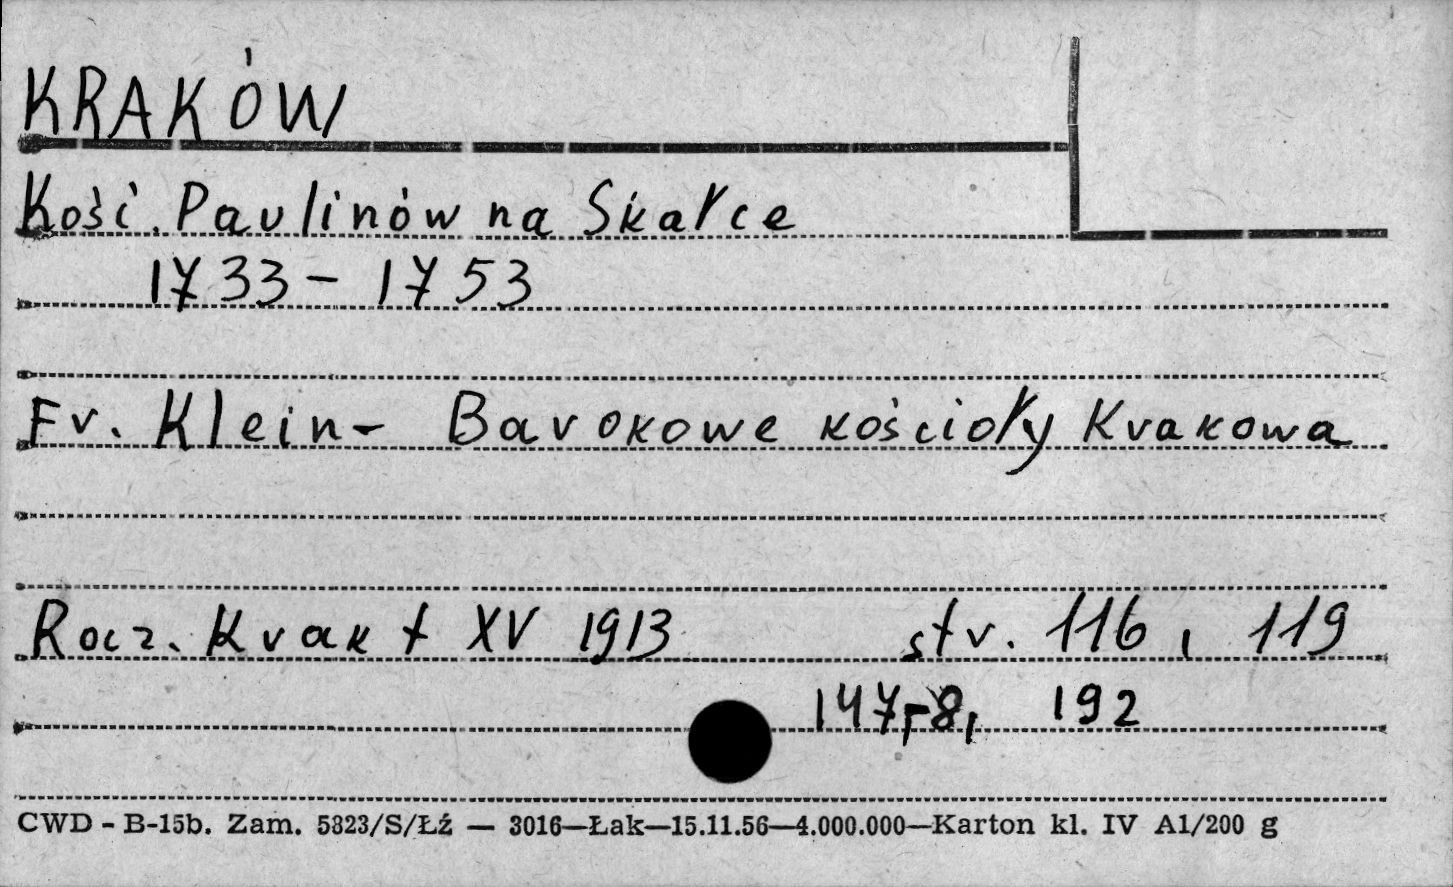 KRAKÓW
Kość. Paulinów na Skałce
1733 - 1753
Fr. Klein - Barokowe kościoły Krakowa
Rocz. Krak t XV 1913 str. 116, 119
147,-8, 192
CWD - B-15b. Zam. 5823/S/Łź — 3016—Łak—15.11.56—4.000.000—Karton kl. IV A1/200 g